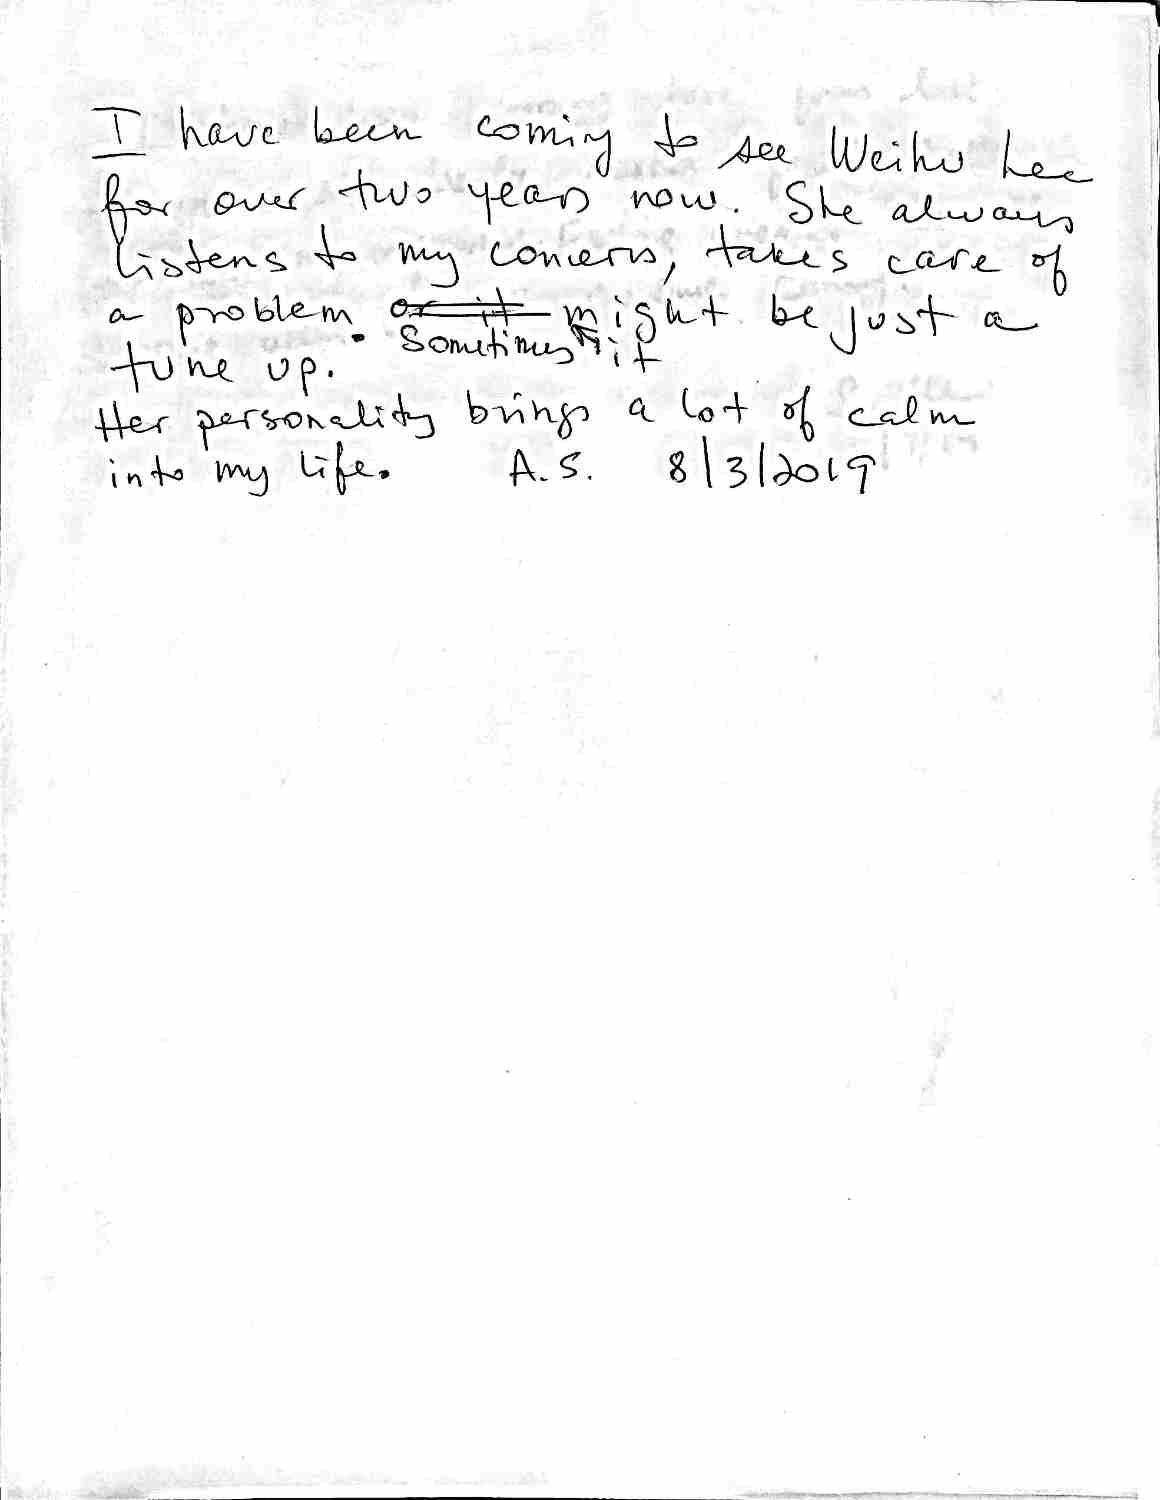 I have been coming to see Weihu Lee
for over two years now. She always
listens to my concerns, takes care of
a problem. or it might be just a
Sometimes it
tune up.
Her personality brings a lot of calm
into my life. A.S. 8/3/2019